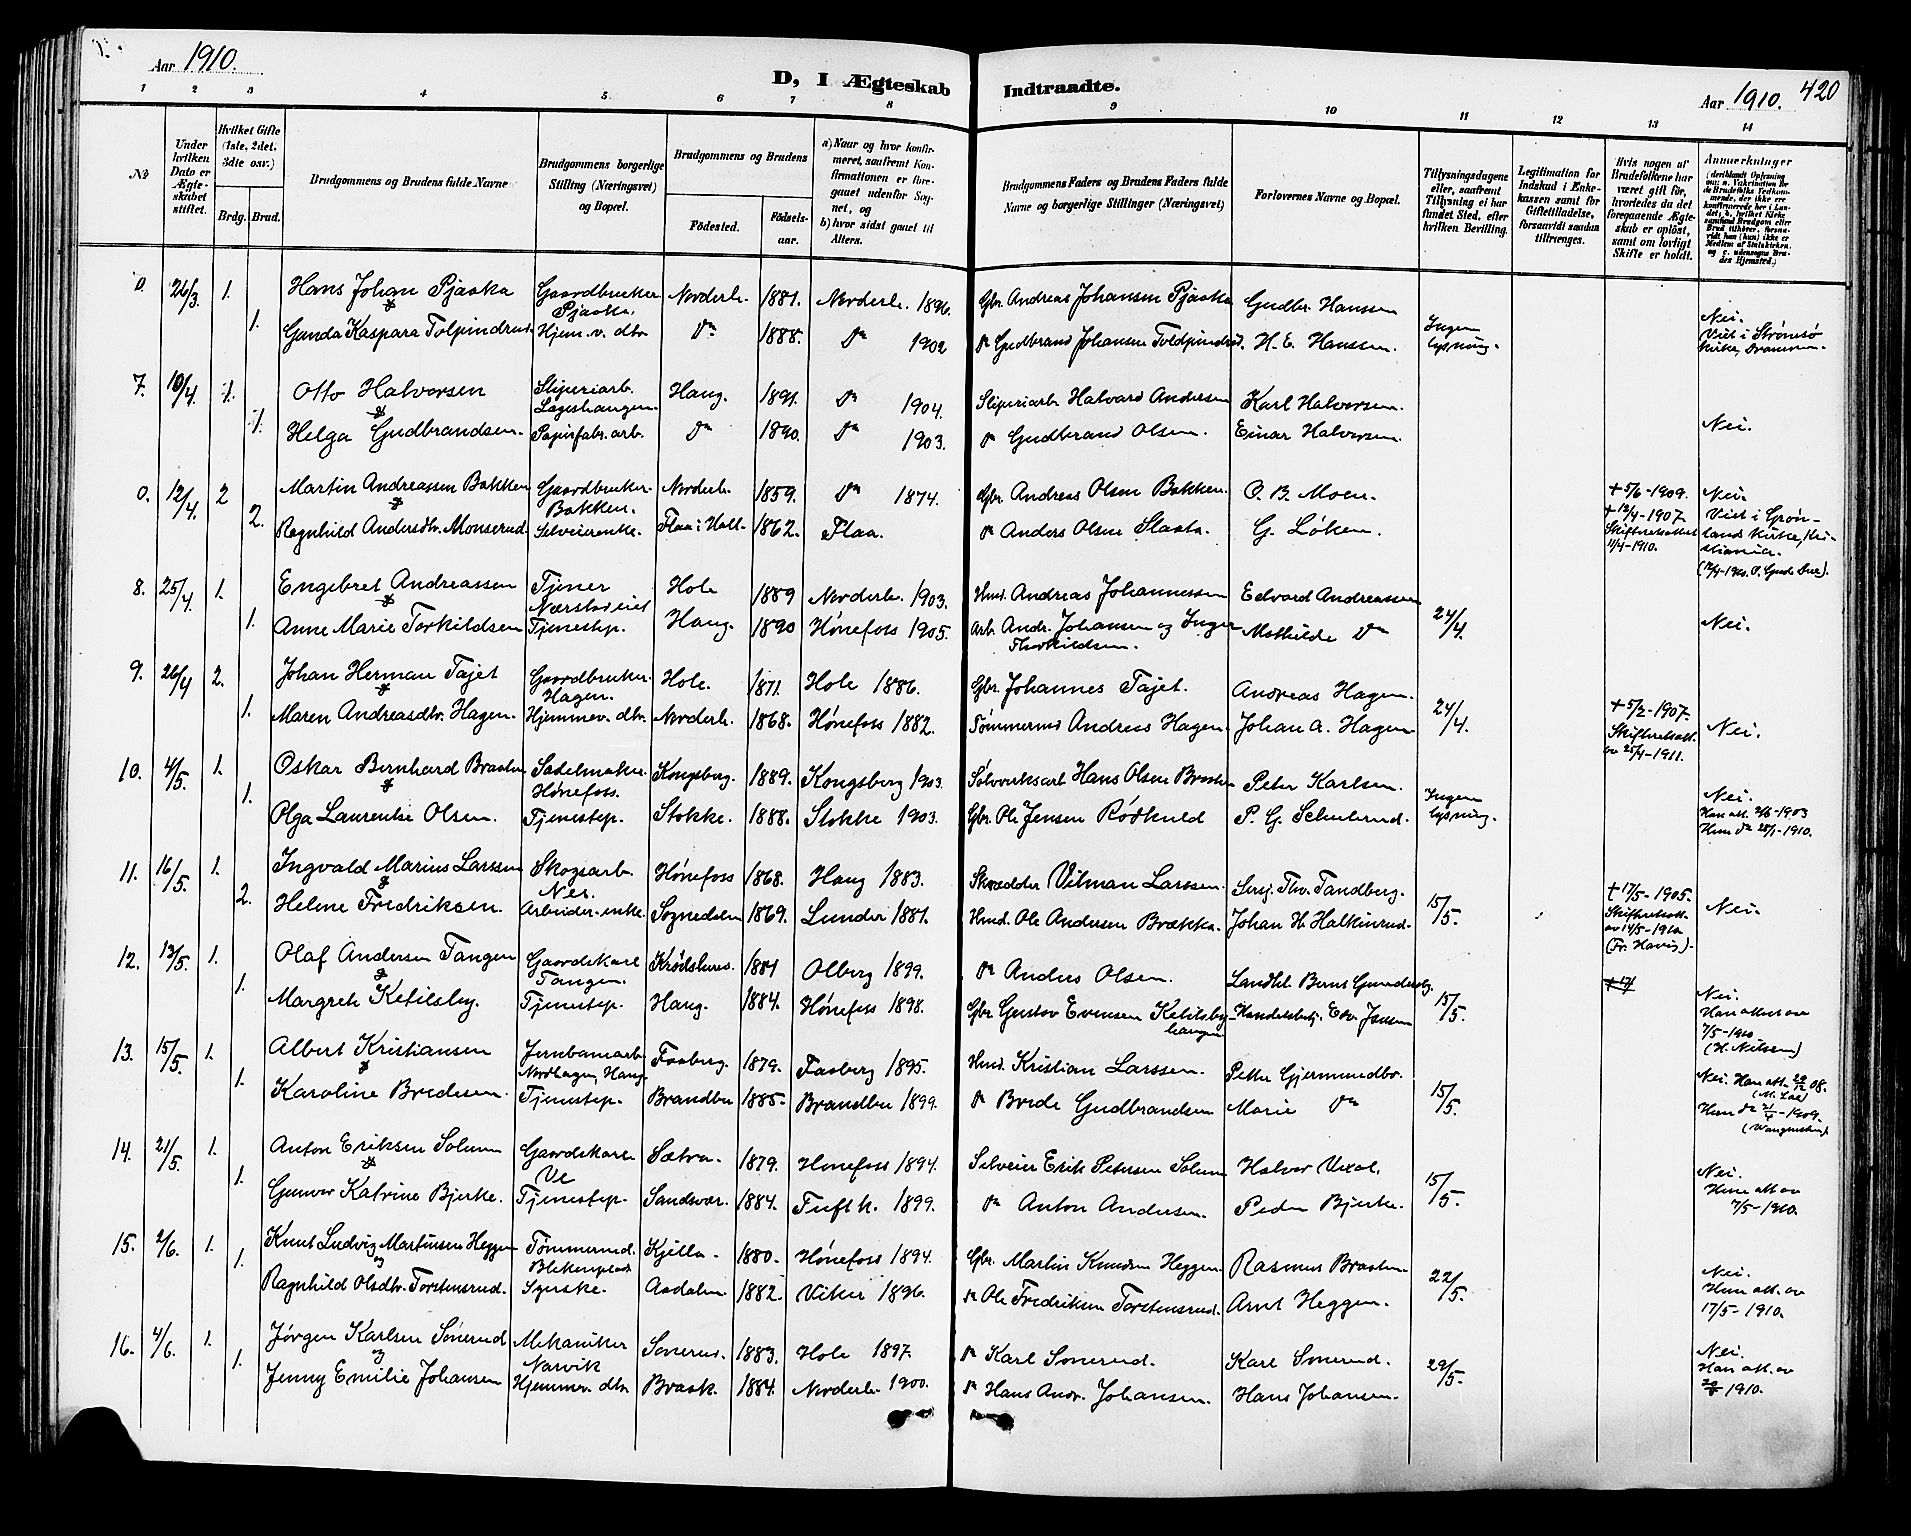 Aar 1910.
D, I Ægteskab Indtraadte.
Aar 1910. 420
1 2 3 4 5. 6 7 8 9 10 11 12 13 14
No
Under hvilken Dato er Ægteskabet stiftet.
Hvilket Gifte (1ste, 2det, 3die osv.)
Brdg. Brud.
Brudgommens og Brudens fulde Navne
Brudgommens borgerlige Stilling (Næringsvei) og Bopæl.
Brudgommens og Brudens
Fødested. Fødselsaar.
a) Naar og hvor konfirmeret, saafremt Konfirmationen er foregaaet udenfor Sognet, og
b) hvor sidst gaaet til Alters.
Brudgommens Faders og Brudens Faders fulde Navne og borgerlige Stillinger (Næringsvei)
Forlovernes Navne og Bopæl.
Tillysningsdagene eller, saafremt Tillysning ei har fundet Sted, efter hvilken Bevilling.
Legitimation for Indskud i Enkekassen samt for Giftetilladelse, forsaavidt saadan tiltrænges.
Hvis nogen af Brudefolkene har været gift før, hvorledes da det foregaaende Ægteskab er opløst, samt om lovligt Skifte er holdt.
Anmerkninger
0. 26/3 1. Hans Johan Pjaaka Gaardbruker Pjaaka. Norderh. 1881. Norderh. 1896. Gbr. Andreas Johansen Pjaaka Gudbr. Hanssen
1. Gunda Kaspara Tolpindrud Hjem.v. dtr. Do 1888. Do 1902 Do Gudbrand Johansen Toldpindrud. H. E. Hanssen. Ingen lysning. Nei. Viet i Strømsø Kirke, Drammen.
7. 10/4. 1. Otto Halvorsen Sliperiarb. Haug. 1891. Do 1904. Sliperiarb. Halvard Andersen Karl Halvorsen.
1. Helga Gudbrandsen. Papirfabr. arb. Do 1890. Do 1903. Do Gudbrand Olsen. Einar Halvorsen. Nei.
0. 12/4. 2 Martin Andreassen Bakken Gaardbruker Bakken. Norderh. 1859. Do 1874. Gbr. Andreas Olsen Bakken. O. B. Moen. + 5/6-1909. Nei.
2. Ragnhild Andersdtr. Monserud. Selveierenke. Flaa i Hall. 1862. Flaa. Do Anders Olsen Slaata. G. Løken. + 12/4-1907. Skifteretsattest 11/4-1910. Viet i Grønlands Kirke, Kristiania.
8. 25/4. 1. Engebret Andreassen Tjener Hole 1889 Norderh. 1903. Hmd. Andreas Johannessen Edvard Andreassen
1. Anne Marie Torkildsen Tjenestep. Haug. 1890 Hønefoss 1905. Arb. Andr. Johansen og Inger Thorkildsen. Mathilde Do 24/4. Nei.
9. 26/4 2. Johan Herman Tajet Gaardbruker. Hagen. Hole. 1871. Hole 1886. Gbr. Johannes Tajet. Andreas Hagen.
1. Maren Andreasdtr. Hagen. Hjemmev. dtr. Norderh. 1868. Hønefoss 1882. Tømmermd Andreas Hagen. Johan A. Hagen 24/4. + 5/2-1907. Skifteretsatt. av 25/4-1911. Nei.
10. 4/5. 1. Oskar Bernhard Braaten Sadelmaker Hønefoss. Kongsberg. 1889. Kongsberg 1903. Sølvverksarb Hans Olsen Braaten Peter Karlsen.
1. Olga Laurentse Olsen. Tjenestep. Stokke. 1888. Stokke 1903. Gbr. Ole Jensen Rødkuld P. G. Schulerud. Ingen lysning. Nei. Han att. 2/6-1903 Hun do 28/1-1910.
11. 16/5. 1. Ingvald Marius Larssen Skogsarb. Nes. Hønefoss 1868. Haug 1883. Skrædder Vilman Larssen. Sersj. Thv. Tandberg.
2. Helene Fredriksen. Arbeider-enke. Sognedalen 1869. Lunder 1881. Hmd. Ole Andersen Brækka. Johan H. Halkinrud. 15/5. + 17/5-1905. Skifteretsatt. av 14/5-1910 (Fr. Havig). Nei.
12. 13/5. 1. Olaf Andersen Tangen Gaardskarl Tangen. Krødshered. 1881 Olberg 1899. Do Anders Olsen. Landhl. Bernt Gundersby.
1. Margrete Ketilsby. Tjenestep. Haug. 1884. Hønefoss 1898. Gbr Gustav Evensen Ketilsbyhaugen Handelsbetj. Edv. Jensen 15/5. Nei. Han attest av 7/5-1910 (H. Nilsen)
13. 15/5. 1. Albert Kristiansen Jernbanearb. Nordhagen, Haug. Faaberg. 1879. Faaberg 1895. Hmd. Kristian Larssen. Petter Gjermundbo.
1. Karoline Bredesen. Tjenestep. Brandbu 1885. Brandbu 1899. Do Brede Gudbrandsen Marie Do 15/5. Nei. Han att. 20/12 08. Hun do 21/4-1909.
14. 21/5. 1. Anton Eriksen Solum Gaardskarl Ve Sætra. 1879. Hønefoss 1894. Selveier Erik Petersen Solum Halvor Vexal.
1. Gunvor Katrine Bjerke. Tjenestep. Sandsvær. 1884. Tuft k. 1899. Do Anton Andersen. Peder Bjerke. 15/5. Nei. Hun att av 7/5-1910.
15. 2/6. 1. Knut Ludvig Martinsen Heggen Tømmermd. Kjella. 1880. Hønefoss 1894. Gbr. Martin Knudsen Heggen. Rasmus Braaten
1. Ragnhild Olsdtr. Torstensrud. Syerske. Aadalen. 1882. Viker 1896. Do Ole Fredriksen Torstensrud. Arnt Heggen. 22/5. Nei. Hun att. av 17/5-1910.
16. 4/6. 1. Jørgen Karlsen Sonerud Mekaniker Narvik Sonerud. 1883. Hole 1897. Do Karl Sonerud. Karl Sonerud.
1. Jenny Emilie Johansen Hjemmev. dtr. Braak. 1884. Norderh. 1900. Do Hans Andr. Johansen. Hans Johansen. 29/5. Nei. Han att. av 20/5 1910.